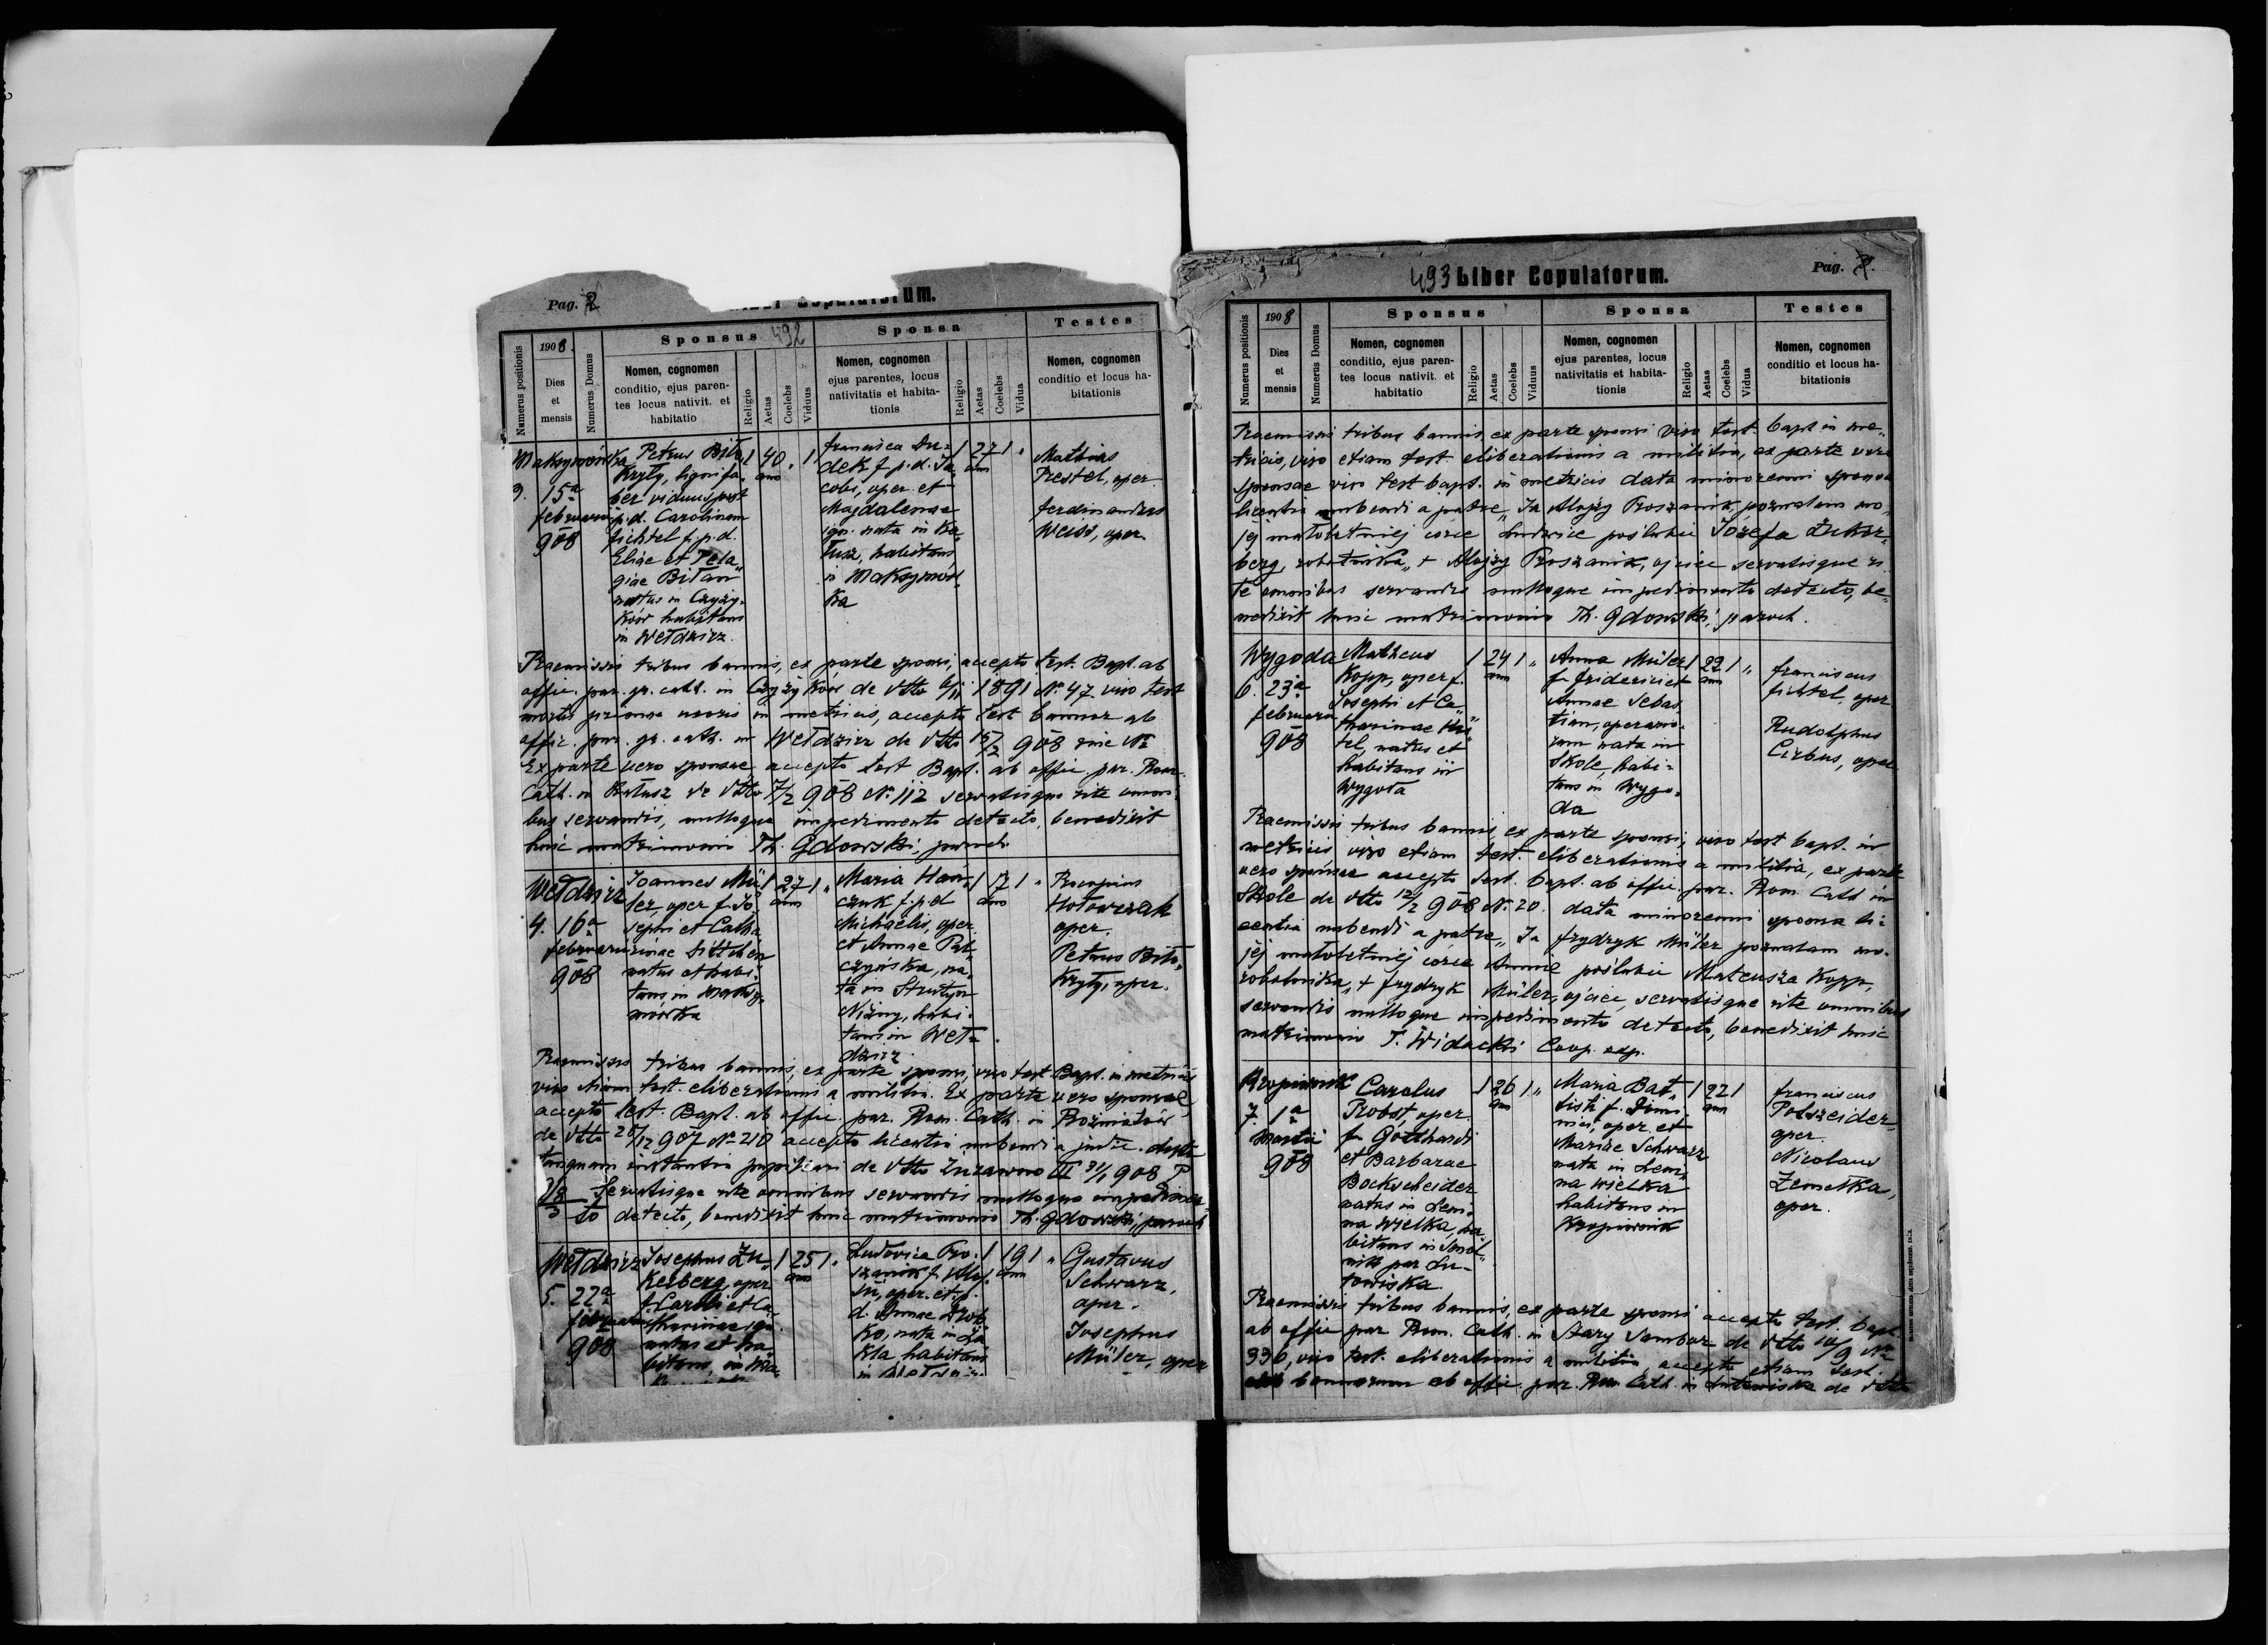 Pag. 2
Liber Copulatorum.
Numerus positionis
1908.
Dies et mensis
Numerus Domus
Sponsus 492
Nomen, cognomen
conditio, ejus paren-
tes locus nativit. et
habitatio
Religio
Aetas
Coelebs
Viduus
Sponsa
Nomen, cognomen
ejus parentes, locus
nativitatis et habita-
tionis
Religio
Aetas
Coelebs
Vidua
Testes
Nomen, cognomen
conditio et locus ha-
bitationis
Maksymówka
3. 15ª
februarii
908
Petrus Biło
Kryły, ligni fa-
ber viduus post
p. d. Carolinam
fichtel f. p. d.
Eliae et Pela-
giae Bitan
natus in Czyży-
ków habitans
in Wełdzirz.
1 40 " 1
ann
francisca Du-
dek f. p. d. Ja-
cobi, oper. et
Magdalenae
ign. nata in Ka-
łusz, habitans
in Maksymów-
ka
1 27 1 "
ann
Mathias
Prestel, oper.
ferdinandus
Weiss, oper.
Praemissis tribus bannis, ex parte sponsi, accepto test. Bapt. ab
offic. par. gr. cath. in Czyżyków de dtto 1891 Nº 47 viso test
mortis primae uxoris in metricis, accepto test bannor ab
offic. par. gr. cath. in Wełdzirz de dtto 15/2 908 sine Nº
Ex parte vero sponsae, accepto test Bapt. ab offic. par. Rom.
Cath. in Kałusz de dtto 7/2 908 Nº 112 servatisque rite omni-
bus servandis, nulloque impedimento detecto, benedixit
huic matrimonio Th. Gdowski, paroch
Wełdzirz
4. 16ª
februarii
908
Joannes Mü-
ler, oper f. Jo-
sephi et Catha-
rinae
natus et habi-
tans in Maksy-
mówka
1 27 1 "
ann
Maria Han-
czuk f. p. d
Michaelis, oper.
et Annae Pał-
czyńska, na-
ta in Strutyn
Niżny, habi-
tans in Weł-
dzirz.
1 17 1 "
ann
Procopius
Hołowczak
oper.
Petrus Biło-
Kryły, oper.
Praemissis tribus bannis, ex parte sponsi, viso test. Bapt. in metricis
viso etiam test. eliberationis a militia. Ex parte vero sponsae,
accepto test. Bapt. ab offic. par. Rom. Cath. in Rożniatów
de dtto 28/12 907 Nº 218 accepto licentia nubendi a judic.
tanquam instantia pupillari de dtto Żurawno III 31/1 908 P
Servatisque rite omnibus servandis nulloque impedimen-
to detecto, benedixit huic matrimonio Th. Gdowski, paroch
Wełdzirz
5. 22ª
februarii
908
Josephus Zu-
kerberg, oper
f. Caroli et Ca-
tharinae ign.
natus et ha-
bitans, in Ma-
1 25 1 "
ann
Ludovica Pro-
szanik f. Aloy-
sii, oper. et p.
d. Annae Drob-
ko, nata in Lu-
kla habitans
in Wełdzirz
1 19 1 "
ann
Gustavus
Schwarz,
oper.
Josephus
Müler, oper
493 Liber Copulatorum.
Pag.
Numerus positionis
1908
Dies et mensis
Numerus Domus
Sponsus
Nomen, cognomen
conditio, ejus paren-
tes locus nativit. et
habitatio
Religio
Aetas
Coelebs
Viduus
Sponsa
Nomen, cognomen
ejus parentes, locus
nativitatis et habita-
tionis
Religio
Aetas
Coelebs
Vidua
Testes
Nomen, cognomen
conditio et locus ha-
bitationis
Praemissis tribus bannis ex parte sponsi viso test. bapt. in me-
tricis, viso etiam test. eliberationis a militia, ex parte vero
sponsae viso test bapt. in metricis data minorenni sponsa
licentia nubendi a patre „Ja Alojzy Proszanik, pozwalam mo-
jéj małoletniéj córce Ludwice poślubić Józefa Zuker-
berg, robotnika„ + Alojzy Proszanik, ojciec servatisque ri-
te omnibus servandis nulloque impedimento detecto, be-
nedixit huic matrimonio Th. Gdowski, paroch.
Wygoda
6. 23ª
februarii
908
Matheus
Kopp, oper f.
Josephi et Ca-
tharinae
natus et
habitans in
Wygoda
1 24 1 "
ann
Anna Müler
f. friderici et
Annae Sebas-
tian, operario-
rum nata in
Skole, habi-
tans in Wygo-
da
1 22 1 "
ann
franciscus
fichtel, oper
Rudolphus
Cirbus, oper
Praemissis tribus bannis, ex parte sponsi, viso test bapt. in
metricis viso etiam test. eliberationis a militia, ex parte
vero sponsae accepto test. bapt. ab offic. par. Rom. Cath in
Skole de dtto 12/2 908 Nº 20. data minorenni sponsa li-
centia nubendi a patre „Ja frydryk Müler pozwalam mo-
jéj małoletniéj córce Annie poślubić Mateusza Kopp,
robotnika„ + frydryk Müler, ojciec, servatisque rite omnibus
servandis nulloque impedimento detecto, benedixit huic
matrimonio T. Widacki Coop. exp.
Kropiwnik
7. 1ª
Martii
908
Carolus
Probst, oper
f. Gotthardi
et Barbarae
Bockscheider
natus in Leni-
na Wielka, ha-
bitans in Smol-
nik par Lu-
towiska
1 26 1 "
ann
Maria Bat-
tisti f. Domi-
nici, oper. et
Mariae Schwarz
nata in Leni-
na Wielka
habitans in
Kropiwnik
1 22 1
ann
franciscus
Potszeider,
oper.
Nicolaus
Zemelka,
oper.
Praemissis tribus bannis, ex parte sponsi accepto test. bapt.
ab offic par Rom. Cath. in Stary Sambor de dtto Nº
336, viso test. eliberationis a militia, accepto etiam test.
bannorum ab offic. par. Rom Cath. in Lutowiska de dtto